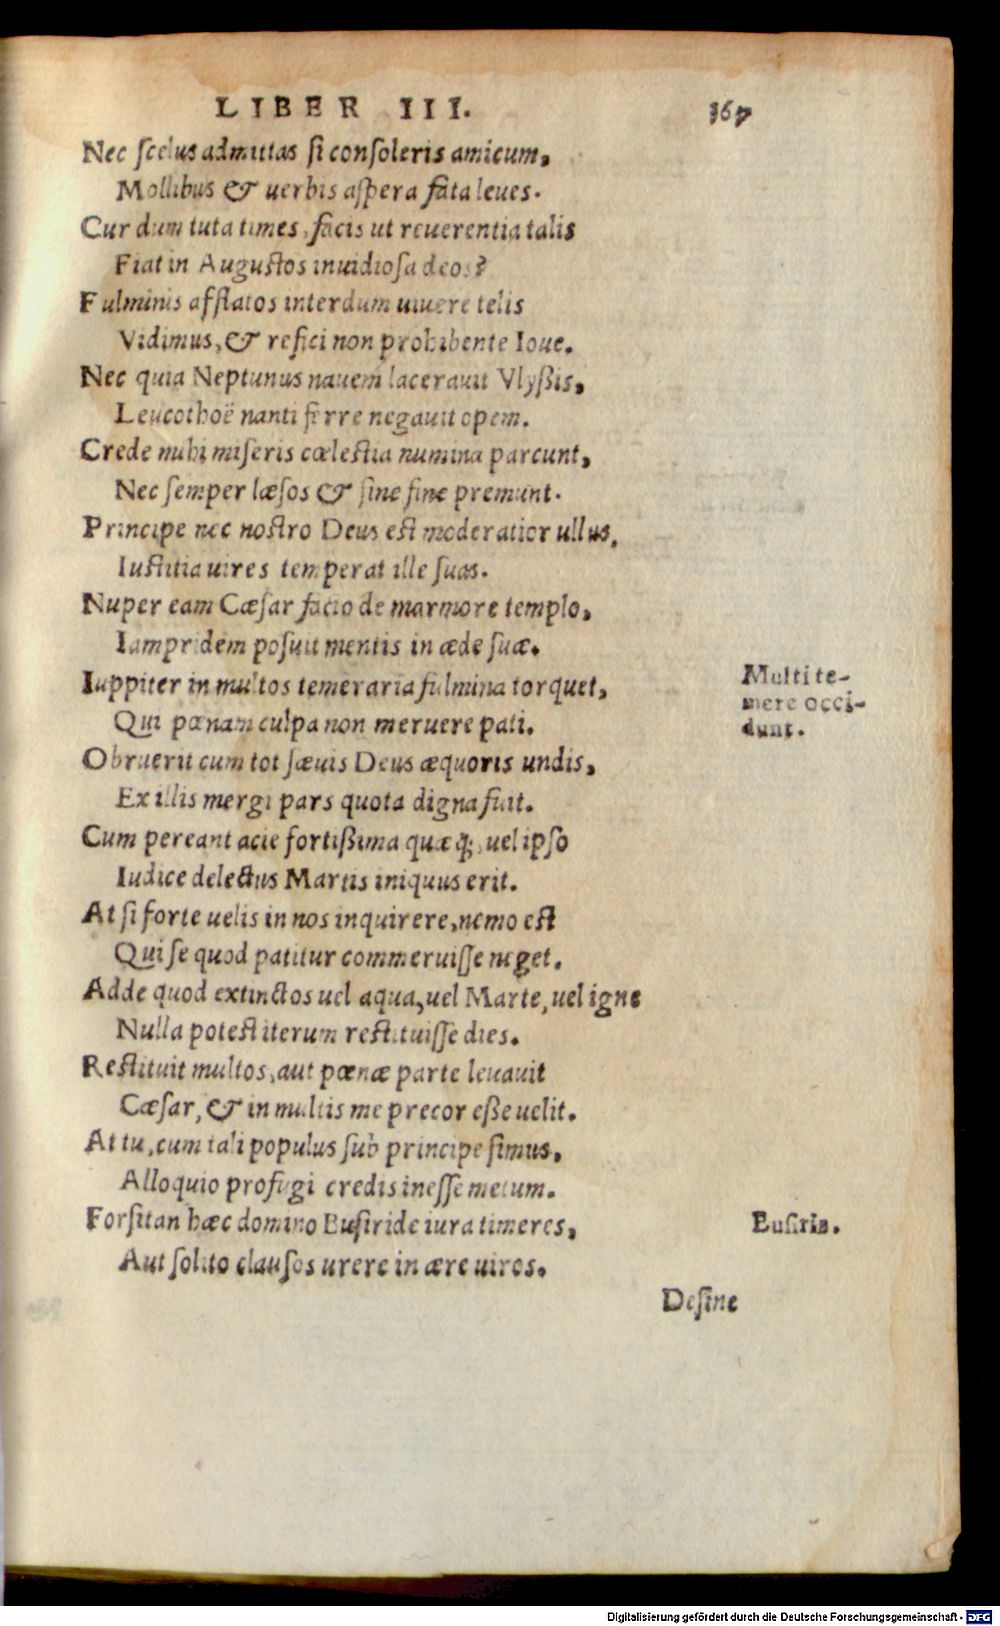 LIBER III. 367
Nec scelus admittas si consoleris amicum,
Mollibus & uerbis aspera fata leues.
Cur dum tuta times, facis ut reuerentia talis
Fiat in Augustos inuidiosa deos?
Fulminis afflatos interdum uiuere telis
Vidimus, & refici non prohibente Ioue.
Nec quia Neptunus nauem lacerauit Vlyßis,
Leucothoë nanti ferre negauit opem.
Crede mihi miseris cælestia numina parcunt,
Nec semper læsos & sine fine premunt.
Principe nec nostro Deus est moderatior ullus,
Iustitia uires temperat ille suas.
Nuper eam Cæsar facto de marmore templo,
Iampridem posuit mentis in æde suæ.
Iuppiter in multos temeraria fulmina torquet,
Qui pœnam culpa non meruere pati.
Multi te-
mere occi-
dunt.
Obruerit cum tot sæuis Deus æquoris undis,
Ex illis mergi pars quota digna fuit.
Cum pereant acie fortißima quæq;, uel ipso
Iudice delectus Martis iniquus erit.
At si forte uelis in nos inquirere, nemo est
Qui se quod patitur commeruisse neget.
Adde quod extinctos uel aqua, uel Marte, uel igne
Nulla potest iterum restituisse dies.
Restituit multos, aut pœnæ parte leuauit
Cæsar, & in multis me precor eße uelit.
At tu, cum tali populus sub principe simus,
Alloquio profugi credis inesse metum.
Forsitan hæc domino Busiride iura timeres,
Busiris.
Aut solito clausos urere in ære uiros.
Desine
Digitalisierung gefördert durch die Deutsche Forschungsgemeinschaft - DFG